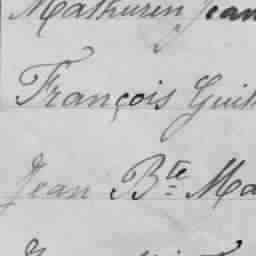 Mathurin Jean
François Guil
Jean Bte Ma